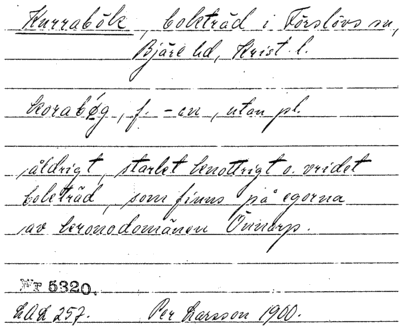 Kurrabök, bokträd i Förslövs sn,
Bjäre hd, Krist. l.
korabøg, f. -en, utan pl.
åldrigt, starkt knottrigt o. vridet
bokträd, som finns på egorna
av kronodomänen Önnarp.
Nr 5320.
LAL 257. Per Larsson 1900.